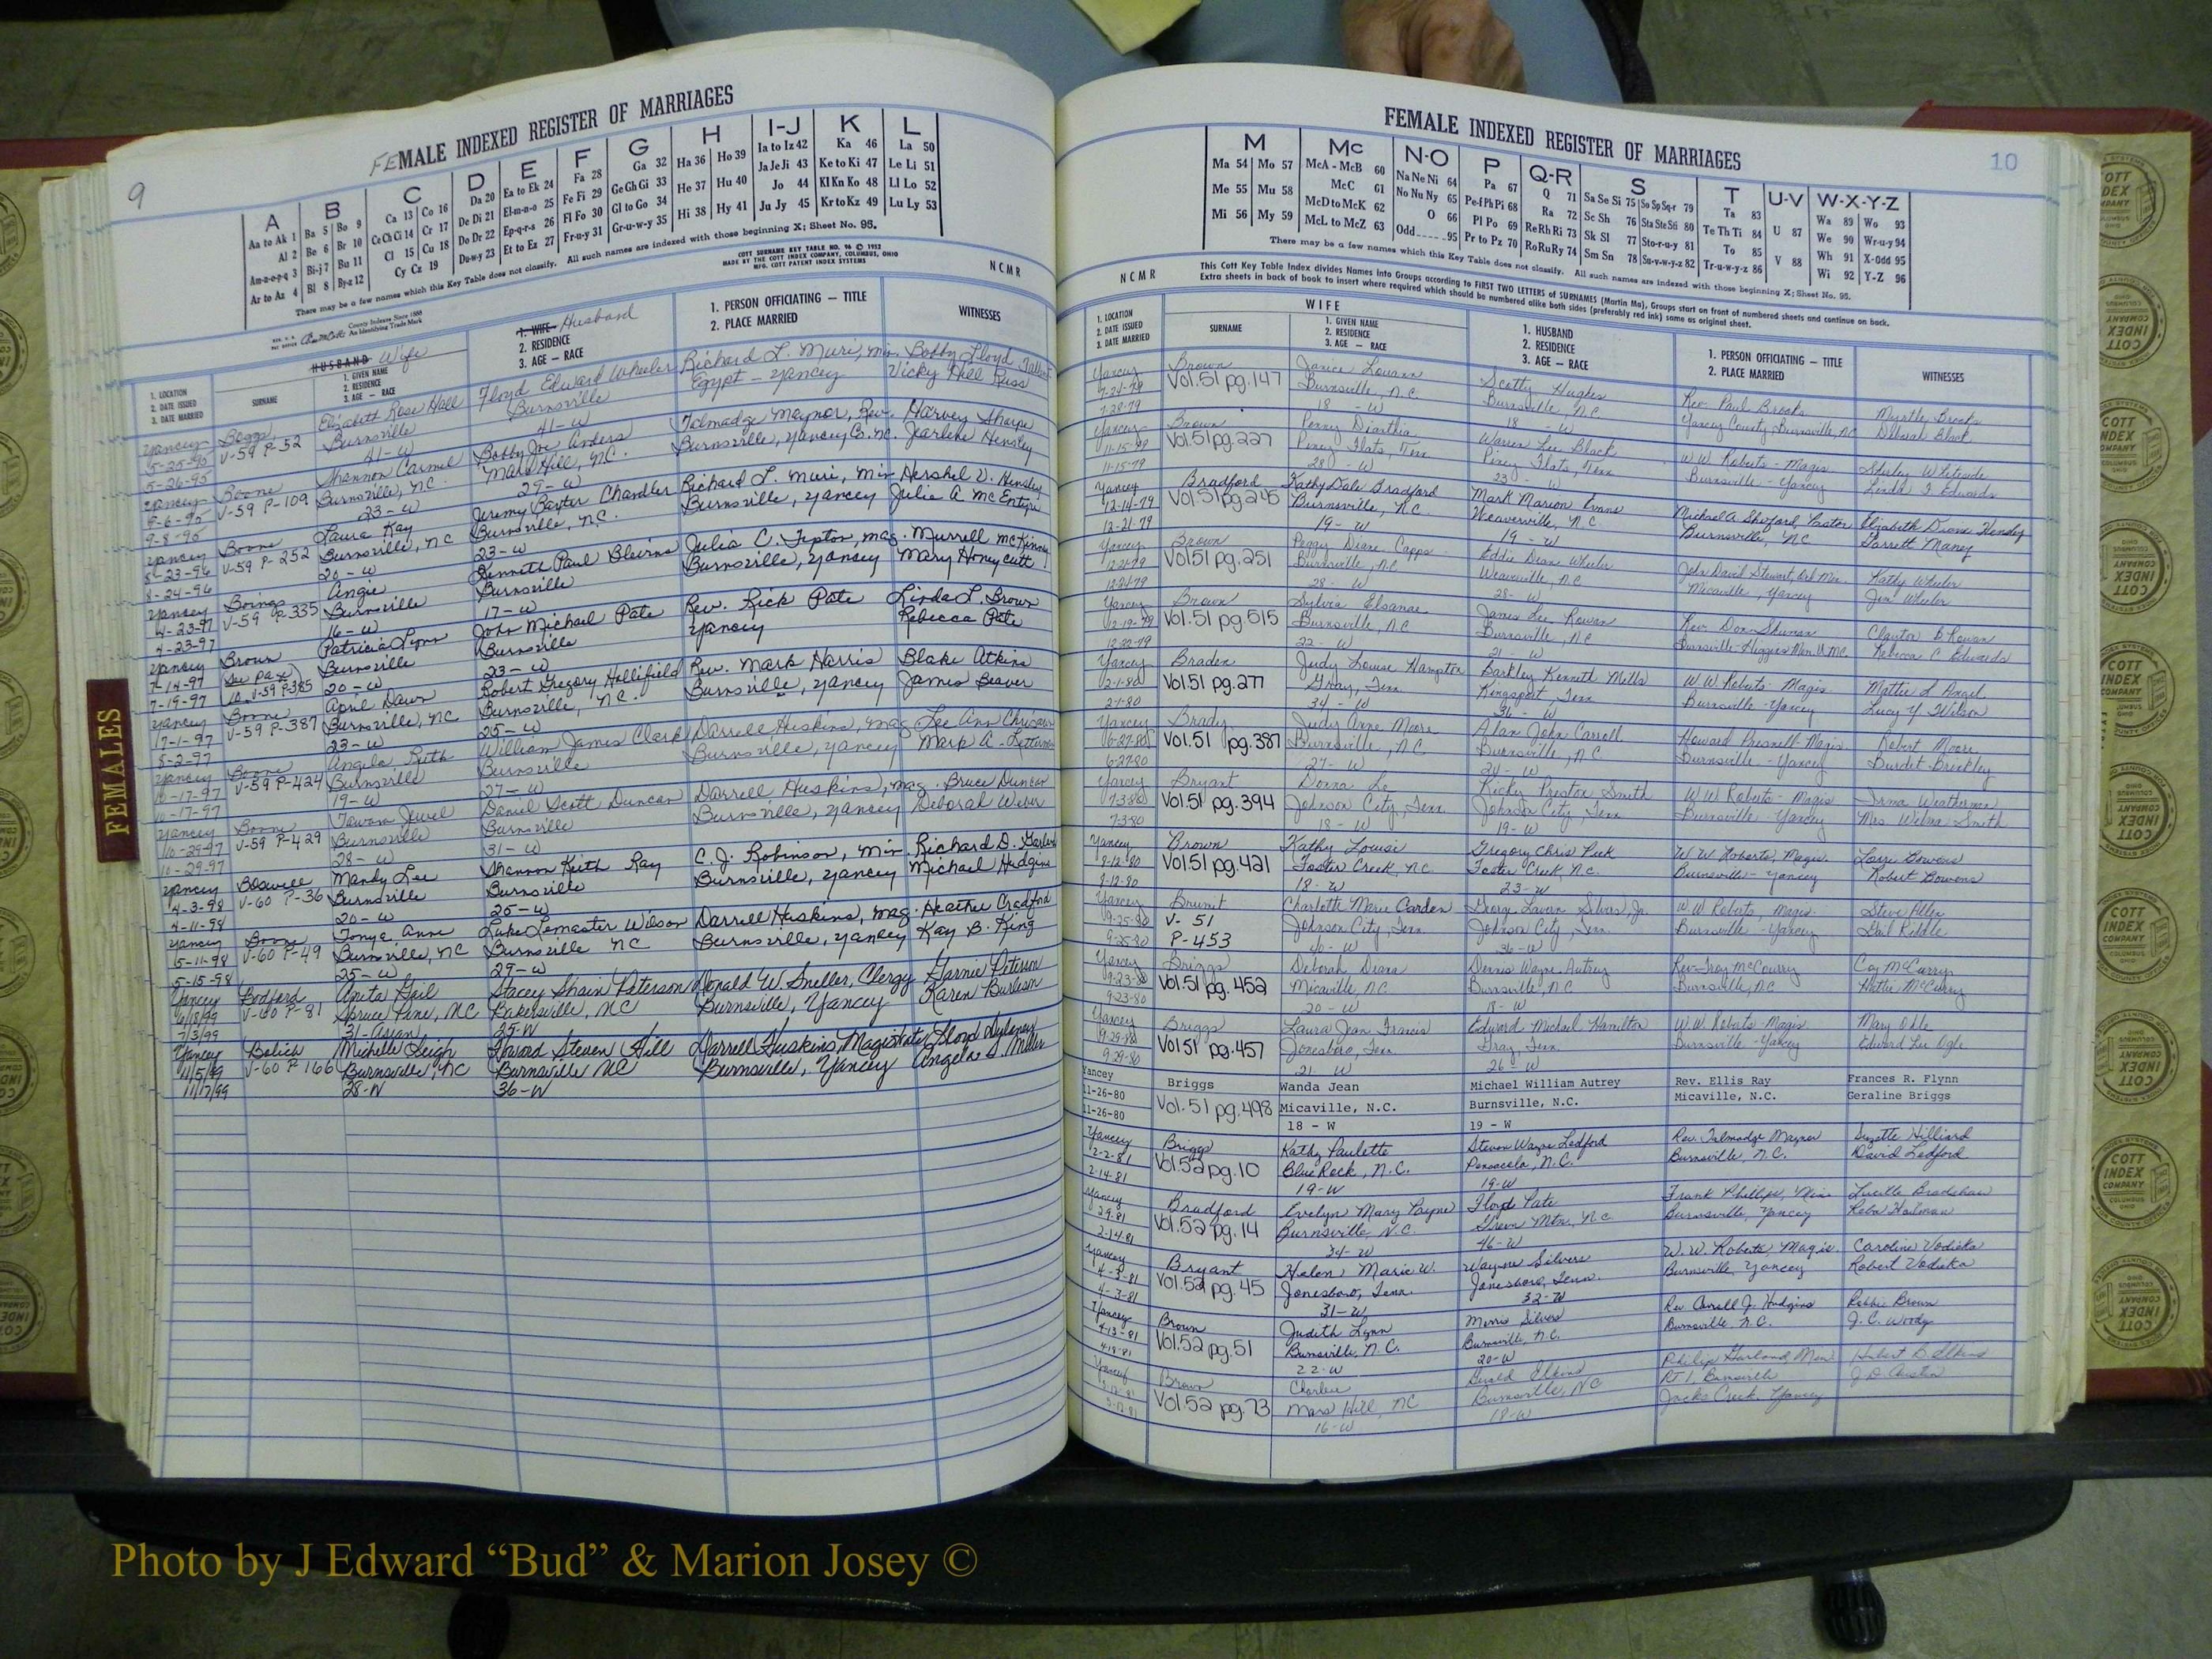 9
FEMALE INDEXED REGISTER OF MARRIAGES
A
Aa to Ak 1
Al 2
Am-n-o-p-q 3
Ar to Az 4
B
Ba 5 Bo 9
Be 6 Br 10
Bi-j 7 Bu 11
Bl 8 By-z 12
C
Ca 13 Co 16
Ce Ch Ci 14 Cr 17
Cl 15 Cu 18
Cy Cz 19
D
Da 20
De Di 21
Do Dr 22
Du-w-y 23
E
Ea to Ek 24
El-m-n-o 25
Ep-q-r-s 26
Et to Ez 27
F
Fa 28
Fe Fi 29
Fl Fo 30
Fr-u-y 31
G
Ga 32
Ge Gh Gi 33
Gl to Go 34
Gr-u-w-y 35
H
Ha 36 Ho 39
He 37 Hu 40
Hi 38 Hy 41
I-J
Ia to Iz 42
Ja Je Ji 43
Jo 44
Ju Jy 45
K
Ka 46
Ke to Ki 47
Kl Kn Ko 48
Kr to Kz 49
L
La 50
Le Li 51
Ll Lo 52
Lu Ly 53
There may be a few names which this Key Table does not classify. All such names are indexed with those beginning X; Sheet No. 95.
COTT SURNAME KEY TABLE NO. 96 © 1952
MADE BY THE COTT INDEX COMPANY, COLUMBUS, OHIO
MFG. COTT PATENT INDEX SYSTEMS
NCMR
County Indexes Since 1888
An Identifying Trade Mark
1. LOCATION
2. DATE ISSUED
3. DATE MARRIED
SURNAME
HUSBAND Wife
1. GIVEN NAME
2. RESIDENCE
3. AGE — RACE
1. WIFE Husband
2. RESIDENCE
3. AGE — RACE
1. PERSON OFFICIATING — TITLE
2. PLACE MARRIED
WITNESSES
Yancey Boggs Elizabeth Rose Hall Floyd Edward Wheeler Richard L. Muri, Min Bobby Lloyd
5-25-95 V-59 P-52 Burnsville Burnsville Egypt - Yancey Vicky Hill Russ
5-26-95 41-W 41-W
Yancey Boone Shannon Carmel Bobby Joe Anders Talmadge Maynor, Rev. Harvey Sharpe
9-6-95 V-59 P-109 Burnsville, NC Mars Hill, N.C. Burnsville, Yancey Co. NC. Jearlene Hensley
9-8-95 23-W 29-W
Yancey Boone Laura Kay Jeremy Baxter Chandler Richard L. Muri, Min Hershel V. Hensley
8-23-96 V-59 P-252 Burnsville, NC Burnsville, N.C. Burnsville, Yancey Julia A McEntyre
8-24-96 20-W 23-W
Yancey Boing Angie Kenneth Paul Blevins Julia C. Tipton, Mag. Murrell McKinney
4-23-97 V-59 P-335 Burnsville Burnsville Burnsville, Yancey Mary Honeycutt
4-23-97 16-W 17-W
Yancey Brown Patricia Lynn John Michael Pate Rev. Rick Pate Linda L. Brown
7-14-97 See pg 10 V-59 P-385 Burnsville Burnsville Yancey Rebecca Pate
7-19-97 20-W 23-W
Yancey Boone April Dawn Robert Gregory Hollifield Rev. Mark Harris Blake Atkins
7-1-97 V-59 P-387 Burnsville, NC Burnsville, N.C. Burnsville, Yancey James Beaver
8-2-97 23-W 25-W
Yancey Boone Angela Ruth William James Clark Darrell Huskins, Mag Lee Ann Chrisawn
10-17-97 V-59 P-424 Burnsville Burnsville Burnsville, Yancey Mark A.
10-17-97 19-W 27-W
Yancey Boone Tawana Jewel Daniel Scott Duncan Darrell Huskins, Mag. Bruce Duncan
10-29-97 V-59 P-429 Burnsville Burnsville Burnsville, Yancey Deborah Weber
10-29-97 28-W 31-W
Yancey Boswell Mandy Lee Shannon Keith Ray C. J. Robinson, Min Richard D. Garland
4-3-98 V-60 P-36 Burnsville Burnsville Burnsville, Yancey Michael Hudgins
4-11-98 20-W 25-W
Yancey Boone Tonya Anne Luke Lemaster Wilson Darrell Huskins, Mag. Heather Cradford
5-11-98 V-60 P-49 Burnsville, NC Burnsville NC Burnsville, Yancey Kay B. King
5-15-98 25-W 29-W
Yancey Bodford Anita Gail Stacey Shain Peterson Donald W. Sneller, Clergy Garnie Peterson
6/18/99 V-60 P-81 Spruce Pine, NC Bakersville, NC Burnsville, Yancey Karen Burleson
7/3/99 31-Asian 25-W
Yancey Bolick Michelle Leigh Howard Steven Hill Darrell Huskins, Magistrate Lloyd Dulaney
11/5/99 V-60 P 166 Burnsville, NC Burnsville NC Burnsville, Yancey Angela S. Miller
11/7/99 28-W 36-W
FEMALES
FEMALE INDEXED REGISTER OF MARRIAGES
10
M
Ma 54 Mo 57
Me 55 Mu 58
Mi 56 My 59
Mc
McA - McB 60
McC 61
McD to McK 62
McL to McZ 63
N-O
Na Ne Ni 64
No Nu Ny 65
O 66
Odd 95
P
Pa 67
Pe-f Ph Pi 68
Pl Po 69
Pr to Pz 70
Q-R
Q 71
Ra 72
Re Rh Ri 73
Ro Ru Ry 74
S
Sa Se Si 75 So Sp Sq-r 79
Sc Sh 76 Sta Ste Sti 80
Sk Sl 77 Sto-r-u-y 81
Sm Sn 78 Su-v-w-y-z 82
T
Ta 83
Te Th Ti 84
To 85
Tr-u-w-y-z 86
U-V
U 87
V 88
W-X-Y-Z
Wa 89 Wo 93
We 90 Wr-u-y 94
Wh 91 X-Odd 95
Wi 92 Y-Z 96
There may be a few names which this Key Table does not classify. All such names are indexed with those beginning X; Sheet No. 95.
NCMR
This Cott Key Table Index divides Names into Groups according to FIRST TWO LETTERS of SURNAMES (Martin Ma), Groups start on front of numbered sheets and continue on back.
Extra sheets in back of book to insert where required which should be numbered alike both sides (preferably red ink) same as original sheet.
1. LOCATION
2. DATE ISSUED
3. DATE MARRIED
WIFE
SURNAME
1. GIVEN NAME
2. RESIDENCE
3. AGE — RACE
1. HUSBAND
2. RESIDENCE
3. AGE — RACE
1. PERSON OFFICIATING — TITLE
2. PLACE MARRIED
WITNESSES
Yancey Brown Janice Louann Scotty Hughes Rev. Paul Brooks Myrtle Brooks
7-21-79 Vol.51 pg.147 Burnsville, N.C. Burnsville, N.C. Yancey County, Burnsville, NC Deborah Black
7-28-79 18 - W 18 - W
Yancey Brown Penny Diantha Warren Lee Black W.W. Roberts - Magis Shirley Whiteside
11-15-79 Vol.51 pg.227 Piney Flats, Tenn Piney Flats, Tenn Burnsville - Yancey Linda F. Edwards
11-15-79 28 - W 23 - W
Yancey Bradford Kathy Dale Bradford Mark Marion Evans Michael A. Shuford, Pastor Elizabeth Diane Hensley
12-14-79 Vol.51 pg.245 Burnsville, N.C. Weaverville, N.C. Burnsville, NC Garrett Maney
12-21-79 19 - W 19 - W
Yancey Brown Peggy Diane Capps Eddie Dean Wheeler John David Stewart, Kathy Wheeler
12-21-79 Vol.51 pg.251 Burnsville, NC Weaverville, NC Micaville, Yancey Jim Wheeler
12-21-79 28 - W 28 - W
Yancey Brown Sylvia Elsanae James Lee Rowan Rev. Don Shuman Clayton B Rowan
12-19-79 Vol.51 pg.515 Burnsville, NC Burnsville, NC Burnsville-Higgins Mem. U.M.C. Rebecca C Edwards
12-22-79 22 - W 21 - W
Yancey Braden Judy Louise Hampton Barkley Kenneth Mills W.W. Roberts - Magis Mattie L Angel
2-1-80 Vol.51 pg.277 Gray, Tenn Kingsport Tenn Burnsville - Yancey Lucy Y Wilson
2-1-80 34 - W 36 - W
Yancey Brady Judy Anne Moore Alan John Carroll Howard Presnell - Magis Robert Moore
6-27-80 Vol.51 pg.387 Burnsville, N.C Burnsville, N.C Burnsville - Yancey Burdet Brickley
6-27-80 27 - W 24 - W
Yancey Bryant Donna Lo Ricky Preston Smith W.W. Roberts - Magis Irma Weatherman
7-3-80 Vol.51 pg.394 Johnson City, Tenn Johnson City, Tenn Burnsville - Yancey Mrs. Welma Smith
7-3-80 18 - W 19 - W
Yancey Brown Kathy Louise Gregory Chris Peek W W Roberts, Magis. Larry Bowens
8-12-80 Vol.51 pg.421 Foster Creek, N.C. Foster Creek, N.C. Burnsville - Yancey Robert Bowens
8-12-80 18 - W 23 - W
Yancey Brumit Charlotte Marie Carden George Lavan Silvers, Jr. W W Roberts, Magis. Steve Allen
9-25-80 V- 51 Johnson City, Tenn Johnson City, Tenn Burnsville - Yancey Gail Riddle
9-25-80 P-453 40 - W 36 - W
Yancey Briggs Deborah Diana Dennis Wayne Autrey Rev. Troy McCurry Coy McCurry
9-23-80 Vol.51 pg.452 Micaville, NC Burnsville, NC Burnsville, NC Hattie McCurry
9-23-80 20 - W 18 - W
Yancey Briggs Laura Jean Francis Edward Michael Hamilton W.W. Roberts Magis Mary Odle
9-29-80 Vol.51 pg.457 Jonesboro, Tenn. Gray, Tenn. Burnsville - Yancey Edward Lee Ogle
9-29-80 21 - W 26 - W
Yancey Briggs Wanda Jean Michael William Autrey Rev. Ellis Ray Frances R. Flynn
11-26-80 Vol.51 pg.498 Micaville, N.C. Burnsville, N.C. Micaville, N.C. Geraline Briggs
11-26-80 18 - W 19 - W
Yancey Briggs Kathy Paulette Steven Wayne Ledford Rev. Talmadge Mayner Suzette Hilliard
2-2-81 Vol.52 pg.10 Blue Rock, N.C. Pensacola, N.C. Burnsville, N.C. David Ledford
2-14-81 19-W 19-W
Yancey Bradford Evelyn Mary Payne Floyd Pate Frank Phillips, Min Lucille Bradshaw
2-9-81 Vol.52 pg.14 Burnsville, N.C. Green Mtn, N.C Burnsville, Yancey Reba
2-14-81 34 - W 46-W
Yancey Bryant Helen Marie W. Wayne Silvers W. W. Roberts, Magis. Caroline Vodicka
4-3-81 Vol.52 pg.45 Jonesboro, Tenn. Jonesboro, Tenn. Burnsville, Yancey Robert Vodicka
4-3-81 31-W 32-W
Yancey Brown Judith Lynn Morris Silvers Rev Carroll J. Hudgins Robbie Brown
4-13-81 Vol.52 pg.51 Burnsville, N.C. Burnsville, N.C. Burnsville, N.C. J. C. Woody
4-18-81 22-W 20-W
Yancey Brown Charlene Elkins Philip Garland, Min Hubert D Elkins
Vol.52 pg.73 Mars Hill, NC Burnsville, NC RT 1, Burnsville J.D. Austin
16-W 18-W Jacks Creek, Yancey
Photo by J Edward “Bud” & Marion Josey ©
COTT
INDEX
COMPANY
COLUMBUS
OHIO